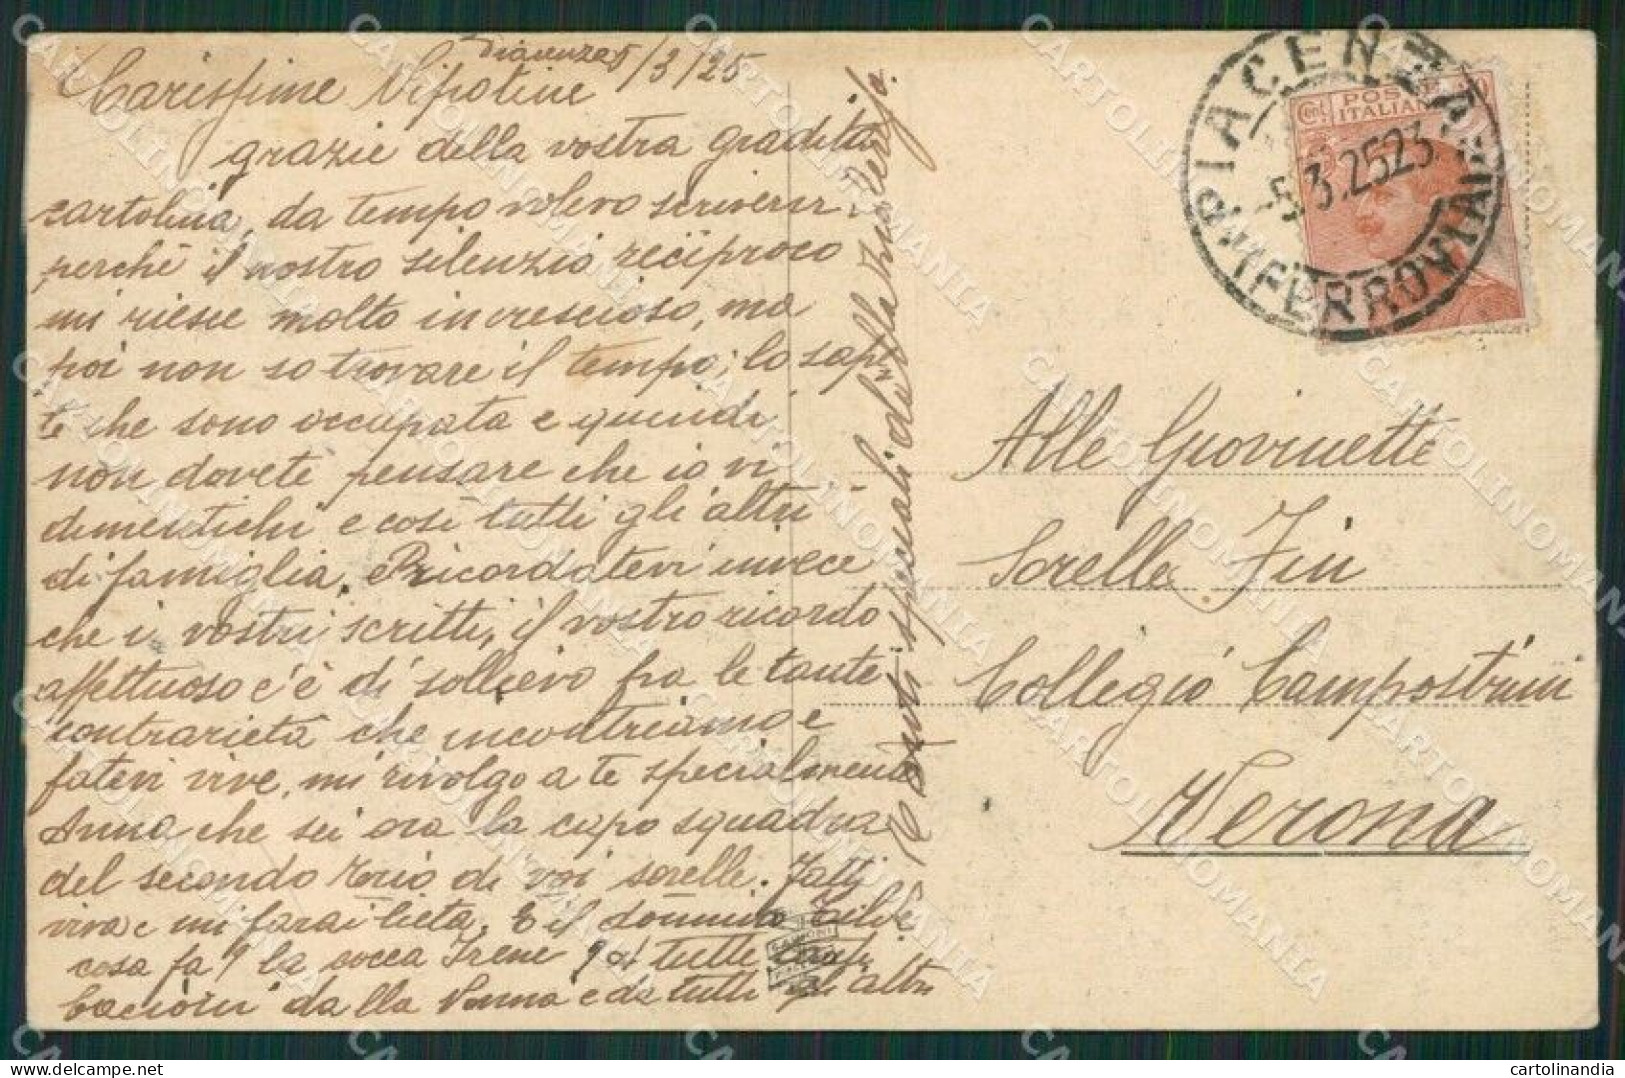 Piacenza 5/3/25
Carissime Nipotine
grazie della vostra gradita
cartolina, da tempo volevo scrivervi
perchè il vostro silenzio reciproco
mi riesce molto increscioso, ma
poi non so trovare il tempo; lo sape
te che sono occupata e quindi
non dovete pensare che io vi
dimentichi e così tutti gli altri
di famiglia. Ricordatevi invece
che i vostri scritti, il vostro ricordo
affettuoso c'è di sollievo fra le tante
contrarietà che incontriamo e
fatevi vive, mi rivolgo a te specialmente
Anna che sei ora la capo squadra
del secondo trio di voi sorelle. Fatti
viva e mi farai lieta. E il
cosa fa? la cocca Irene? a tutte
bacioni dalla Nonna e da tutti gli altri
e saluti speciali dalla
POSTE ITALIANE
PIACENZA
FERROVIA
5.3.25 23
Alle Giovinette
Sorelle Fin
Collegio Campostrini
Verona
CARTOLINOMANIA
cartolinandia